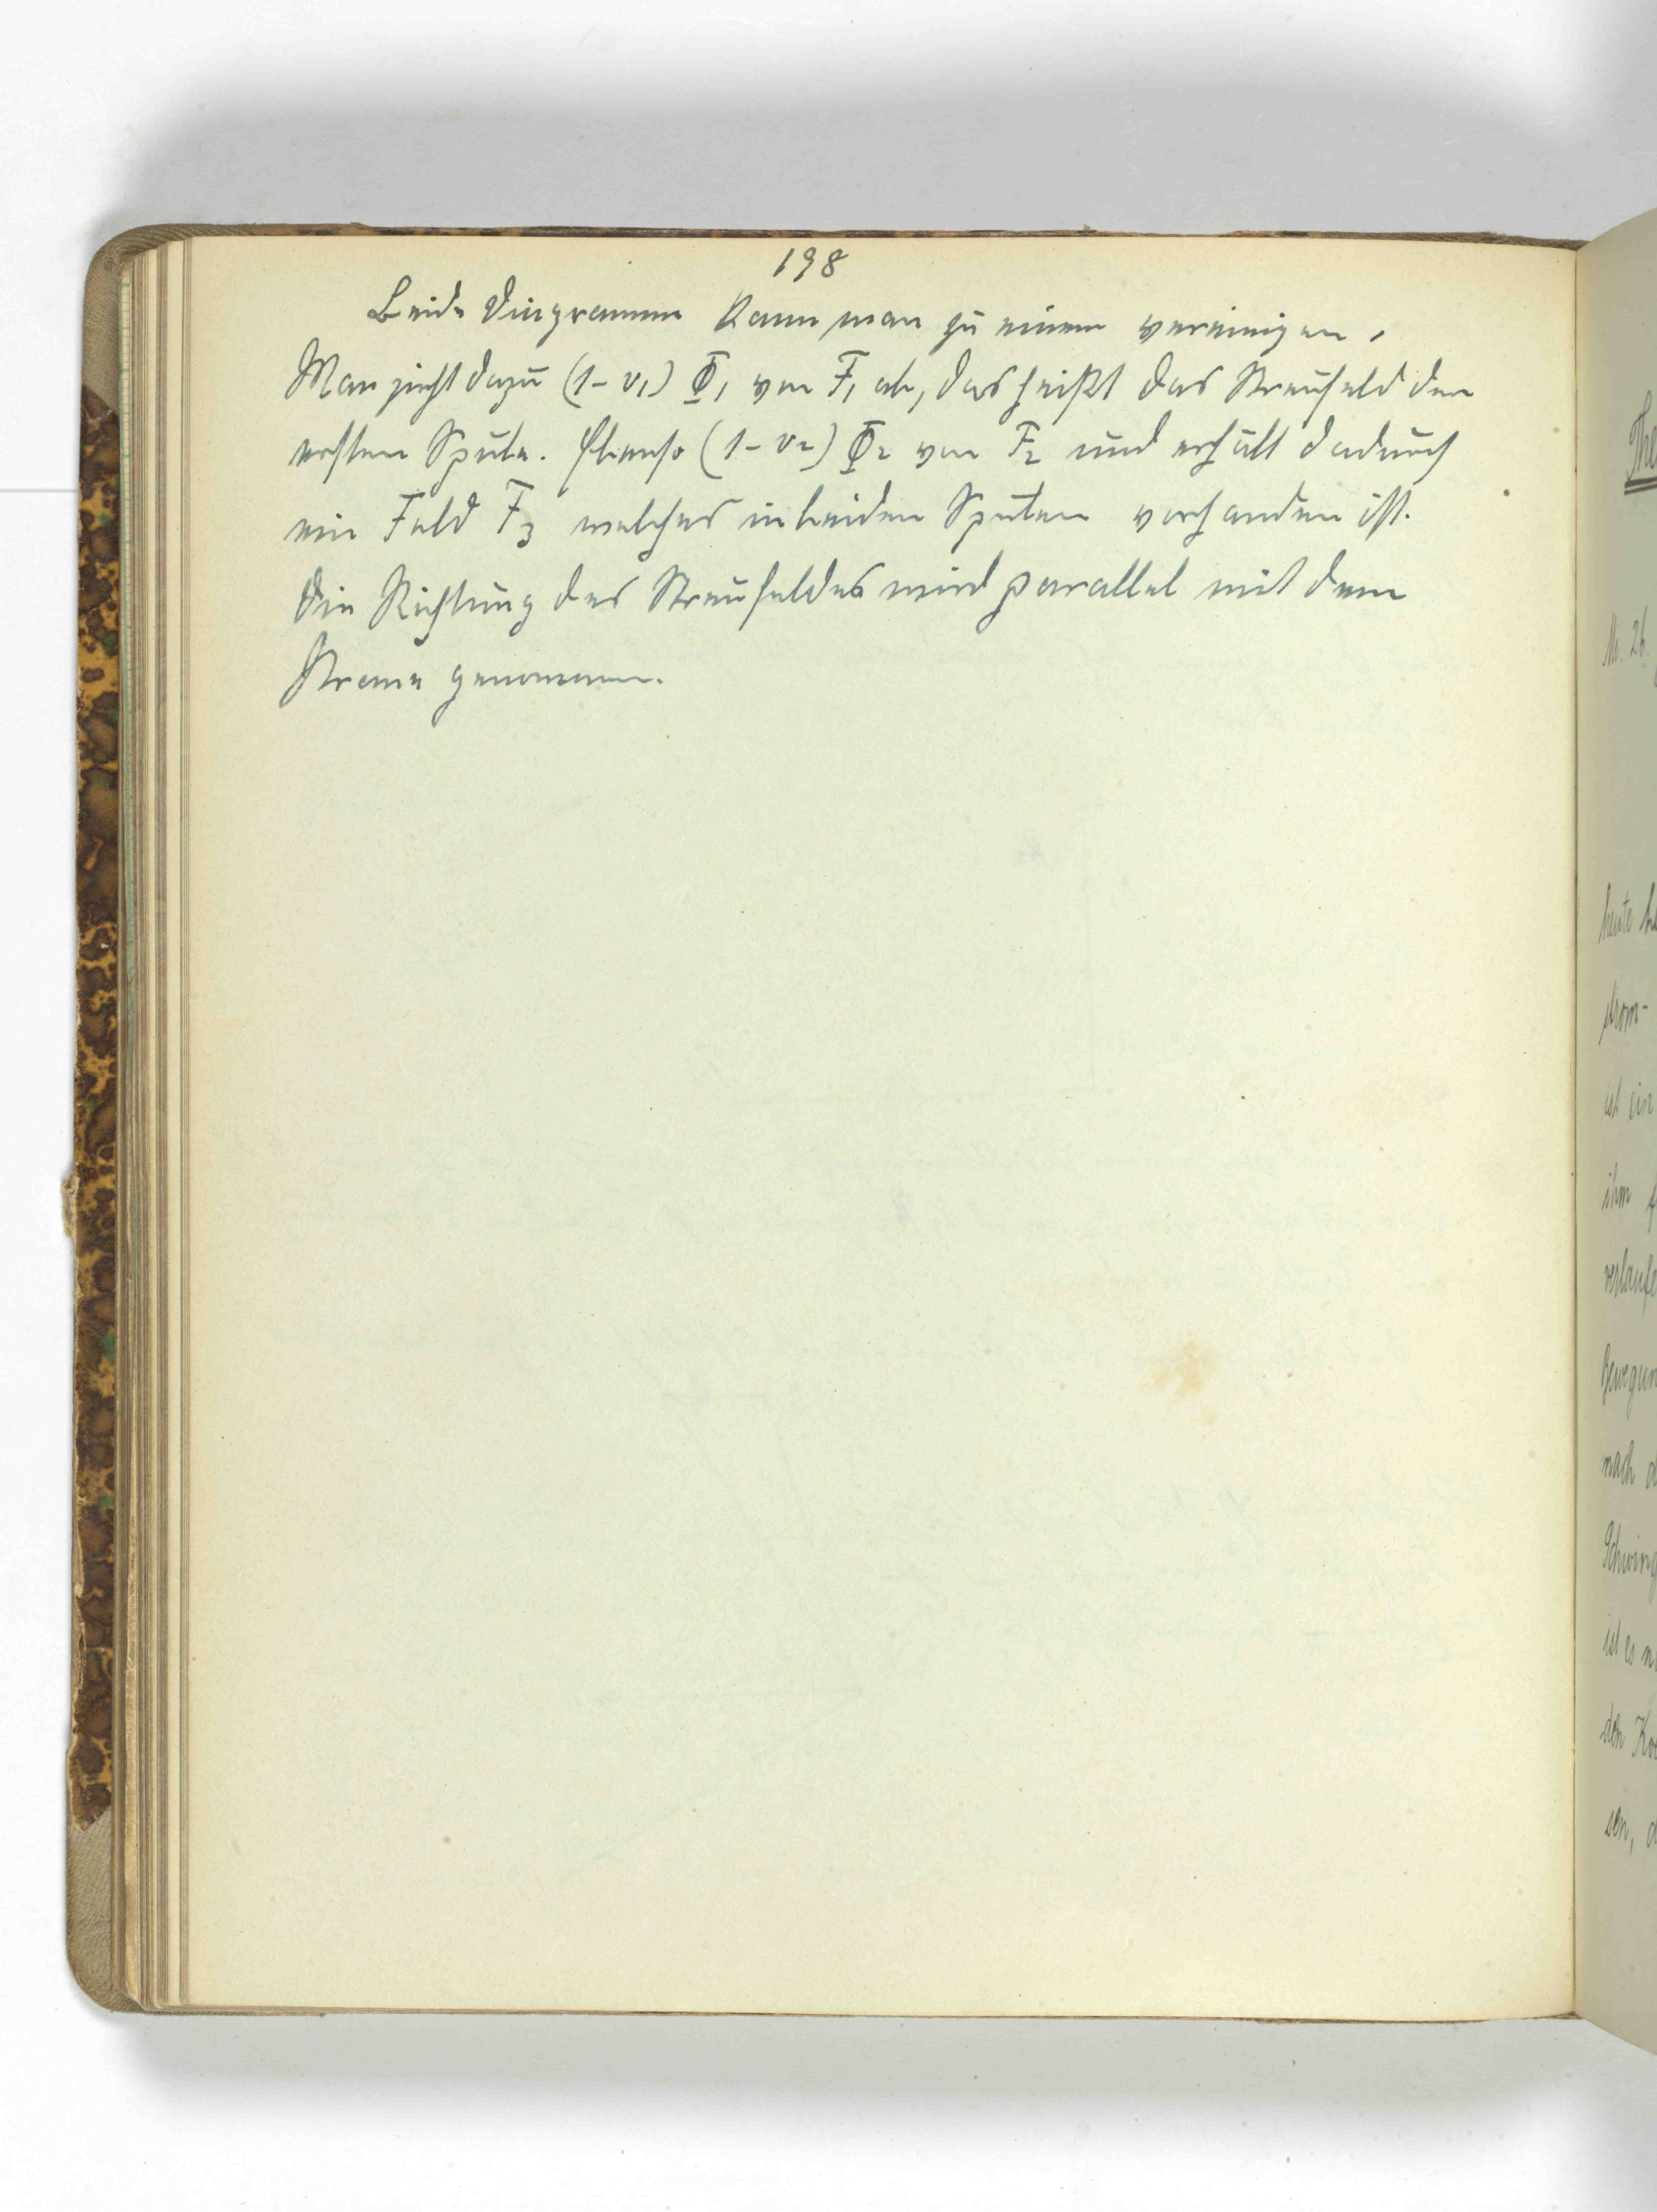 198
Beide Diagramme kann man zu einem vereinigen.
Man zieht dazu (1-v₁) Φ₁ von F₁ ab, das heißt das Streufeld der
ersten Spule. Ebenso (1-v₂) Φ₂ von F₂ und erhält dadurch
ein Feld F₃ welches in beiden Spulen vorhanden ist.
Die Richtung des Streufeldes wird parallel mit dem
Strome genommen.
The
No. 26.
heute
strom-
ist ein
ihm
verlaufe
bewegun
nach d
Schwing
ist es
den
sen, d